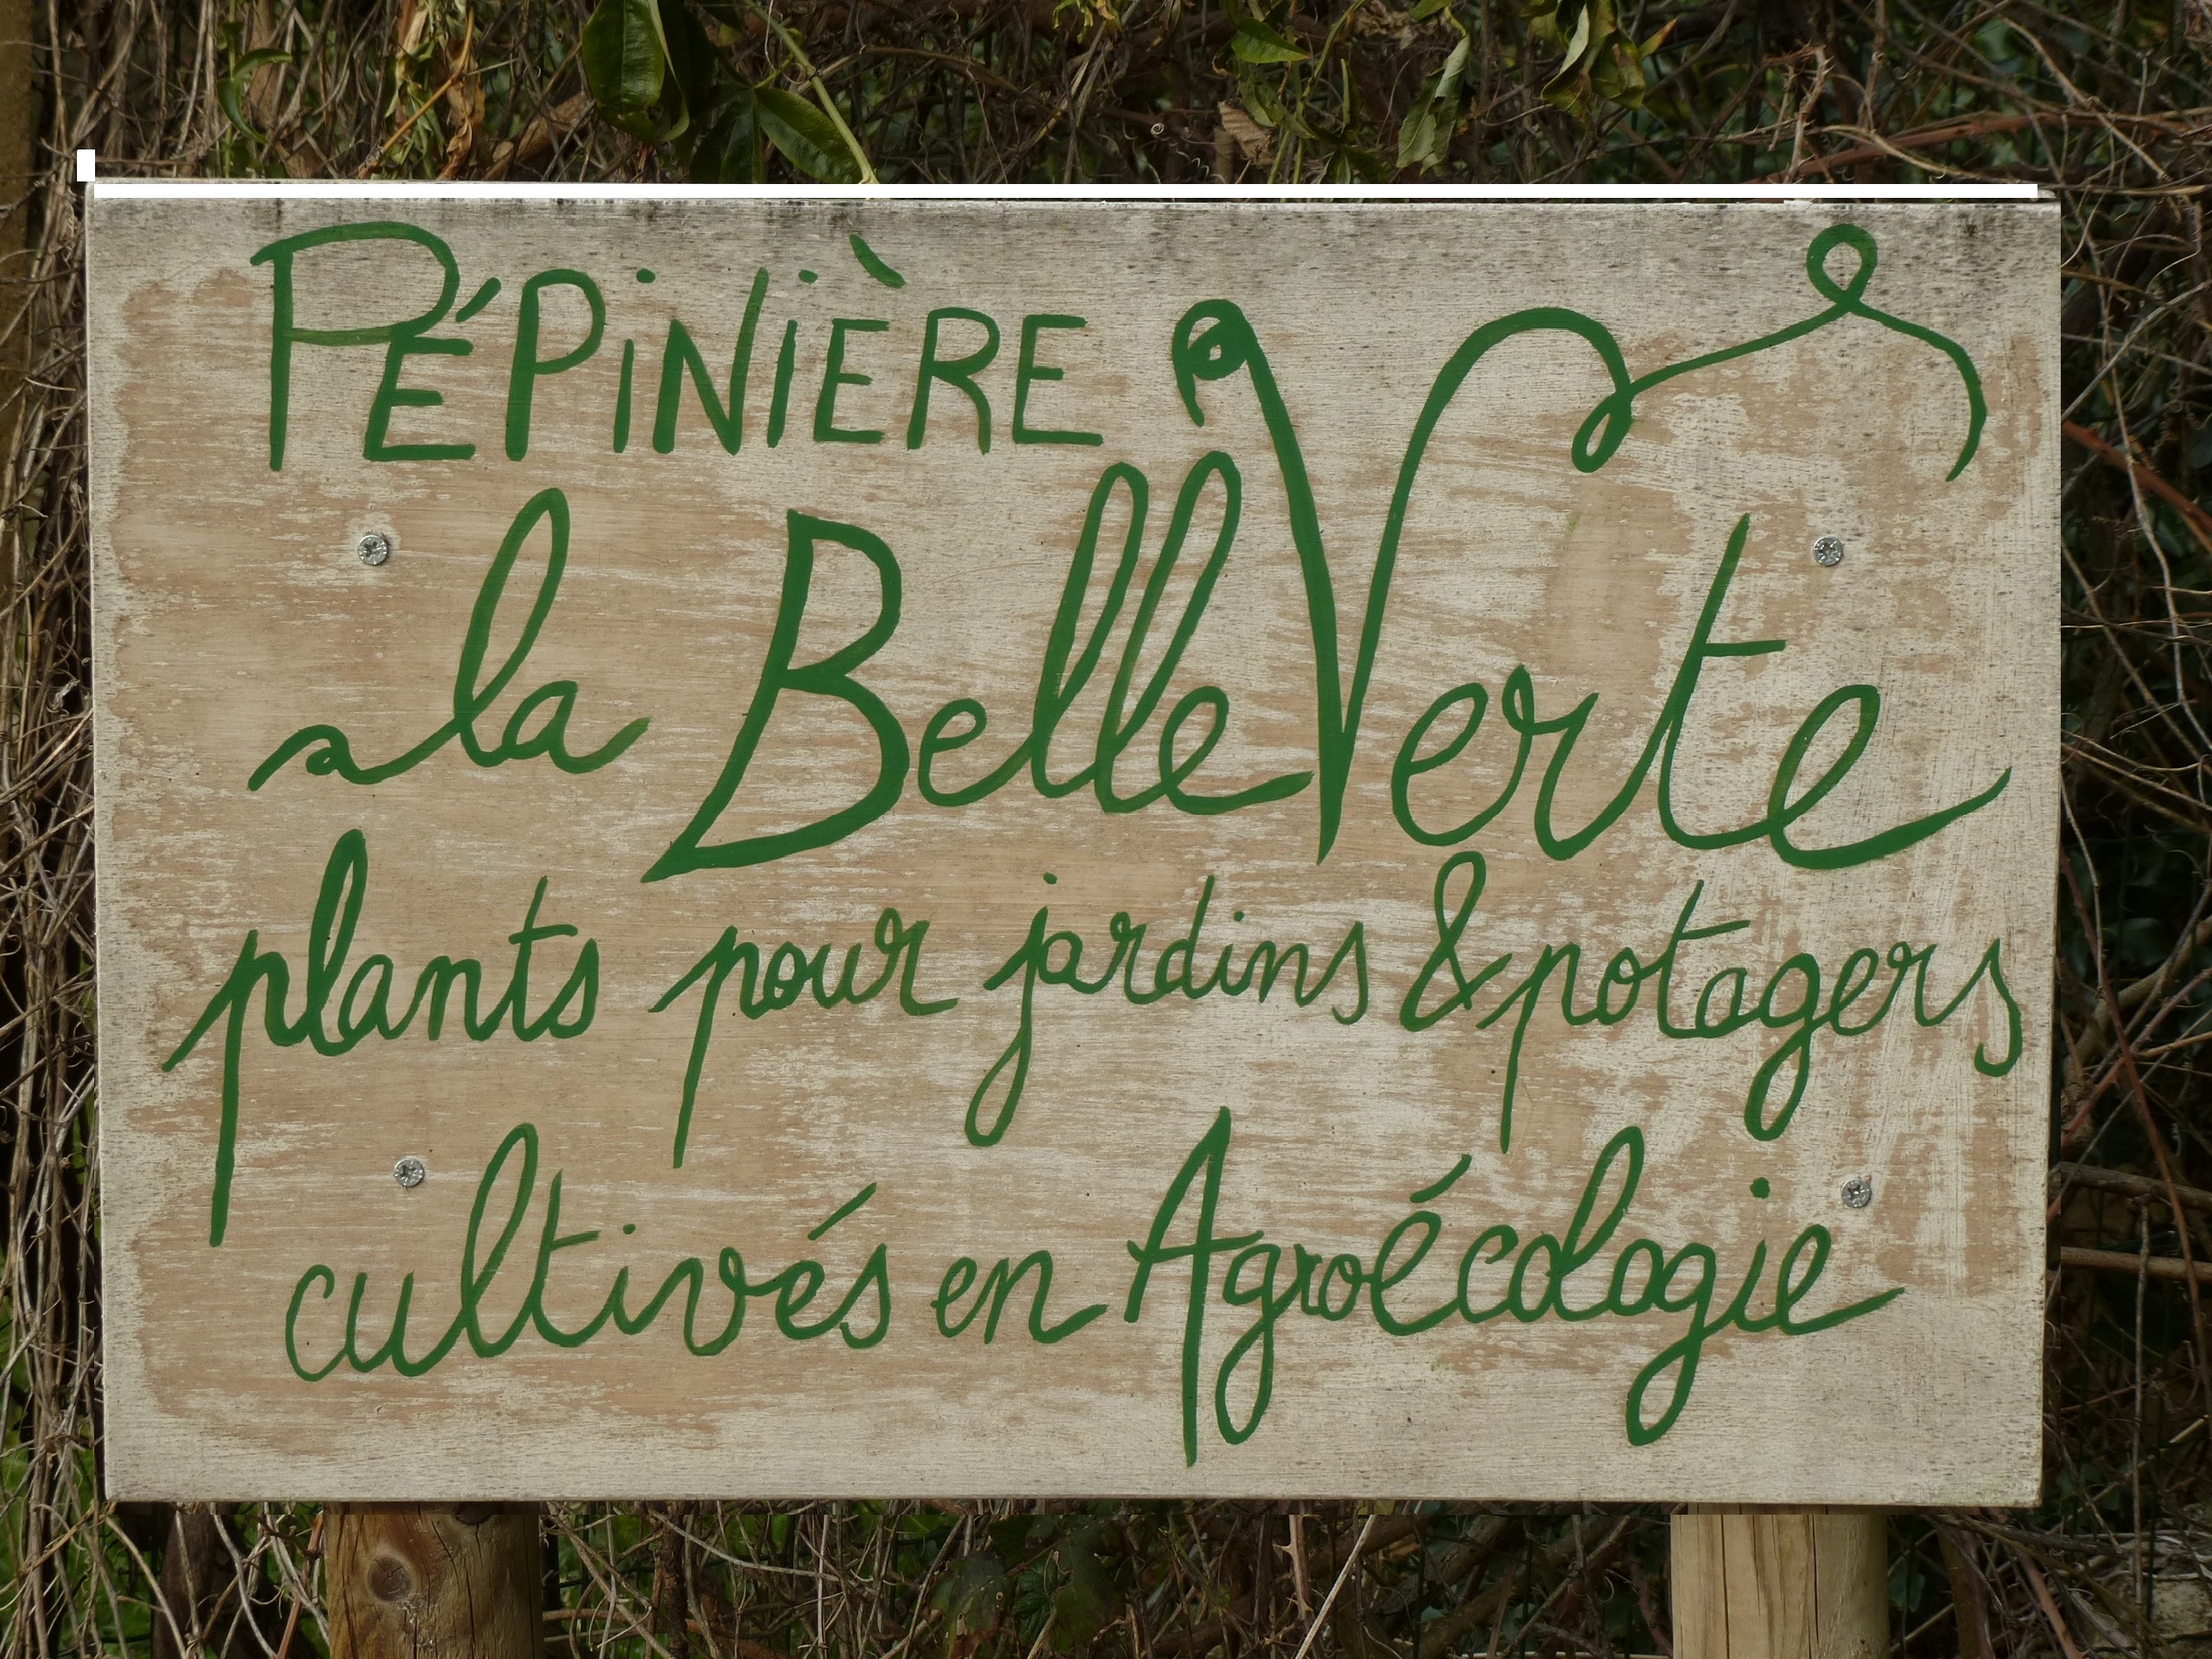 PÉPiNiÈRE
la Belle Verte
plants pour jardins & potagers
cultivés en Agroécologie